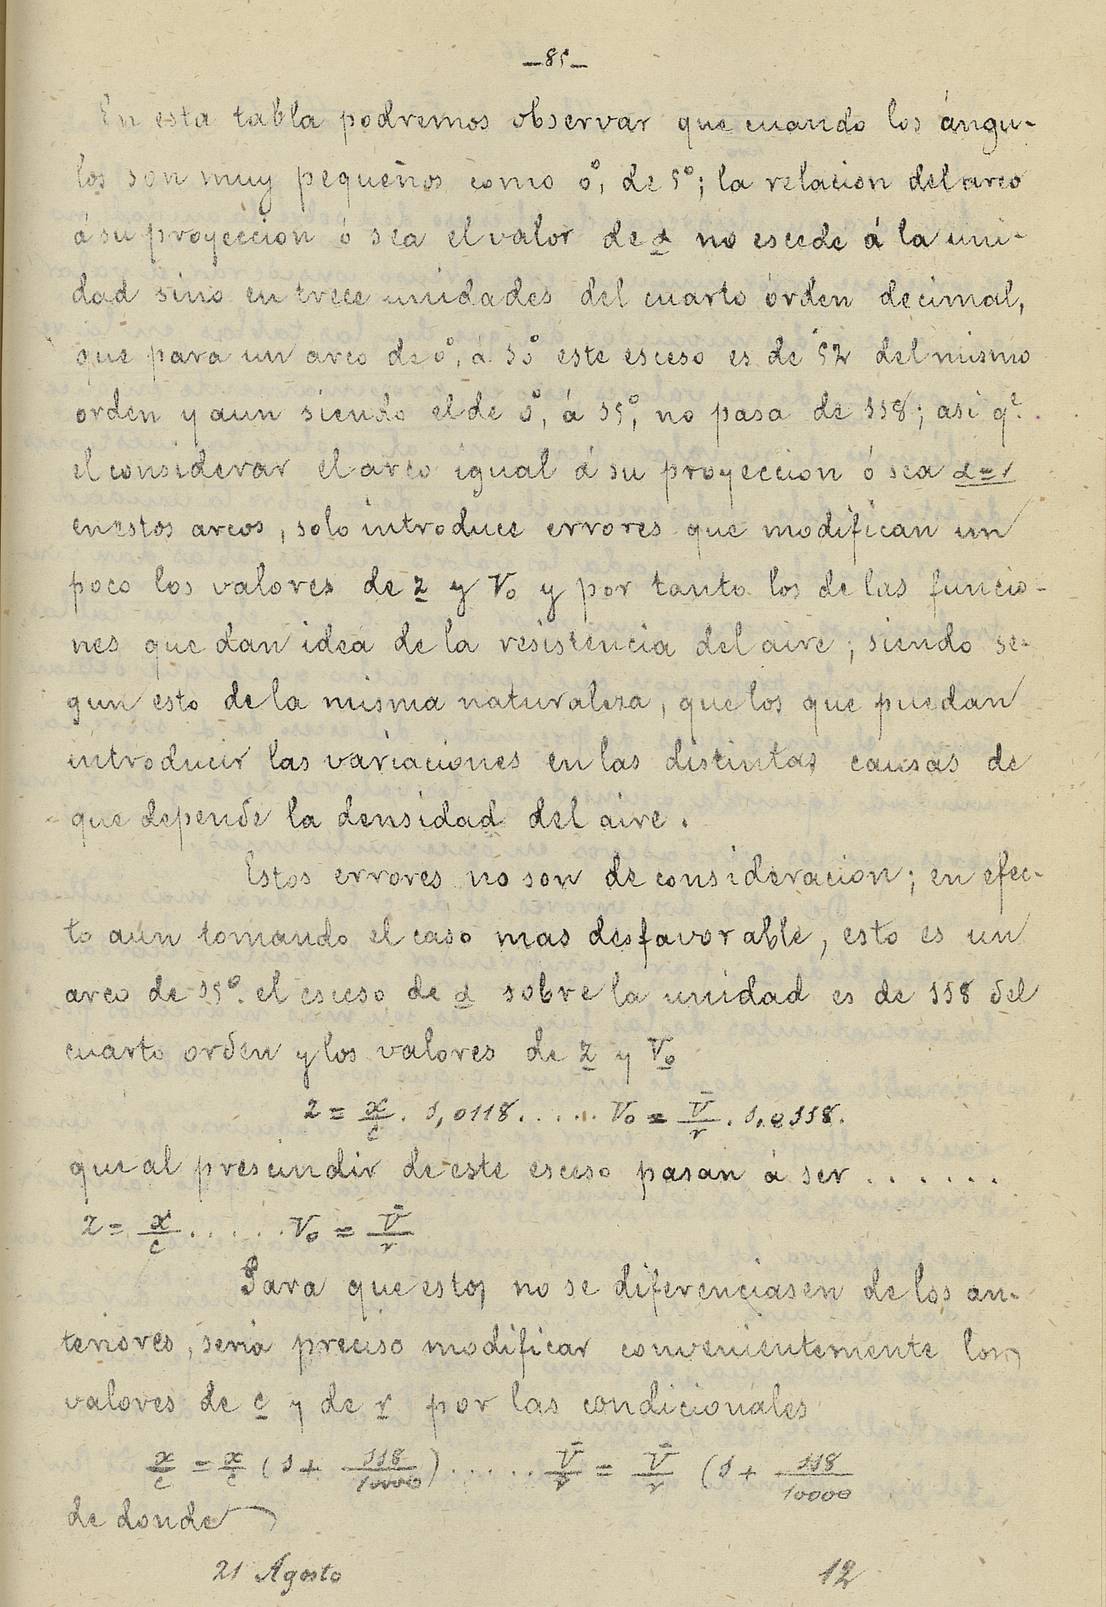 —85—
En esta tabla podremos observar que cuando los ángu-
los son muy pequeños como 0°, de 5°; la relacion del arco
á su proyeccion ó sea el valor de α no escede á la uni-
dad sino en trece unidades del cuarto órden decimal,
que para un arco de 0°, á 10° este esceso es de 52 del mismo
orden y aun siendo el de 0°, á 15°, no pasa de 118; asi qᵉ
el considerar el arco igual á su proyeccion ó sea α=1
en estos arcos, solo introduce errores que modifican un
poco los valores de z y V₀ y por tanto los de las funcio-
nes que dan idea de la resistencia del aire; siendo se-
gun esto de la misma naturaleza, que los que puedan
introducir las variaciones en las distintas causas de
que depende la densidad del aire.
Estos errores no son de consideracion; en efec-
to aún tomando el caso mas desfavorable, esto es un
arco de 15° el esceso de α sobre la unidad es de 118 del
cuarto orden y los valores de z y V₀
z = x/c . 1,0118 . . . . . V₀ = V̄/r . 1,0118.
que al prescindir de este esceso pasan á ser . . . . . .
z = x/c . . . . . V₀ = V̄/r
Para que estos no se diferenciasen de los an-
teriores, seria preciso modificar convenientemente los
valores de c y de r por las condicionales
x/c = x/c (1 + 118/10000) . . . . . V̄/r = V̄/r (1 + 118/10000
de donde
21 Agosto 12